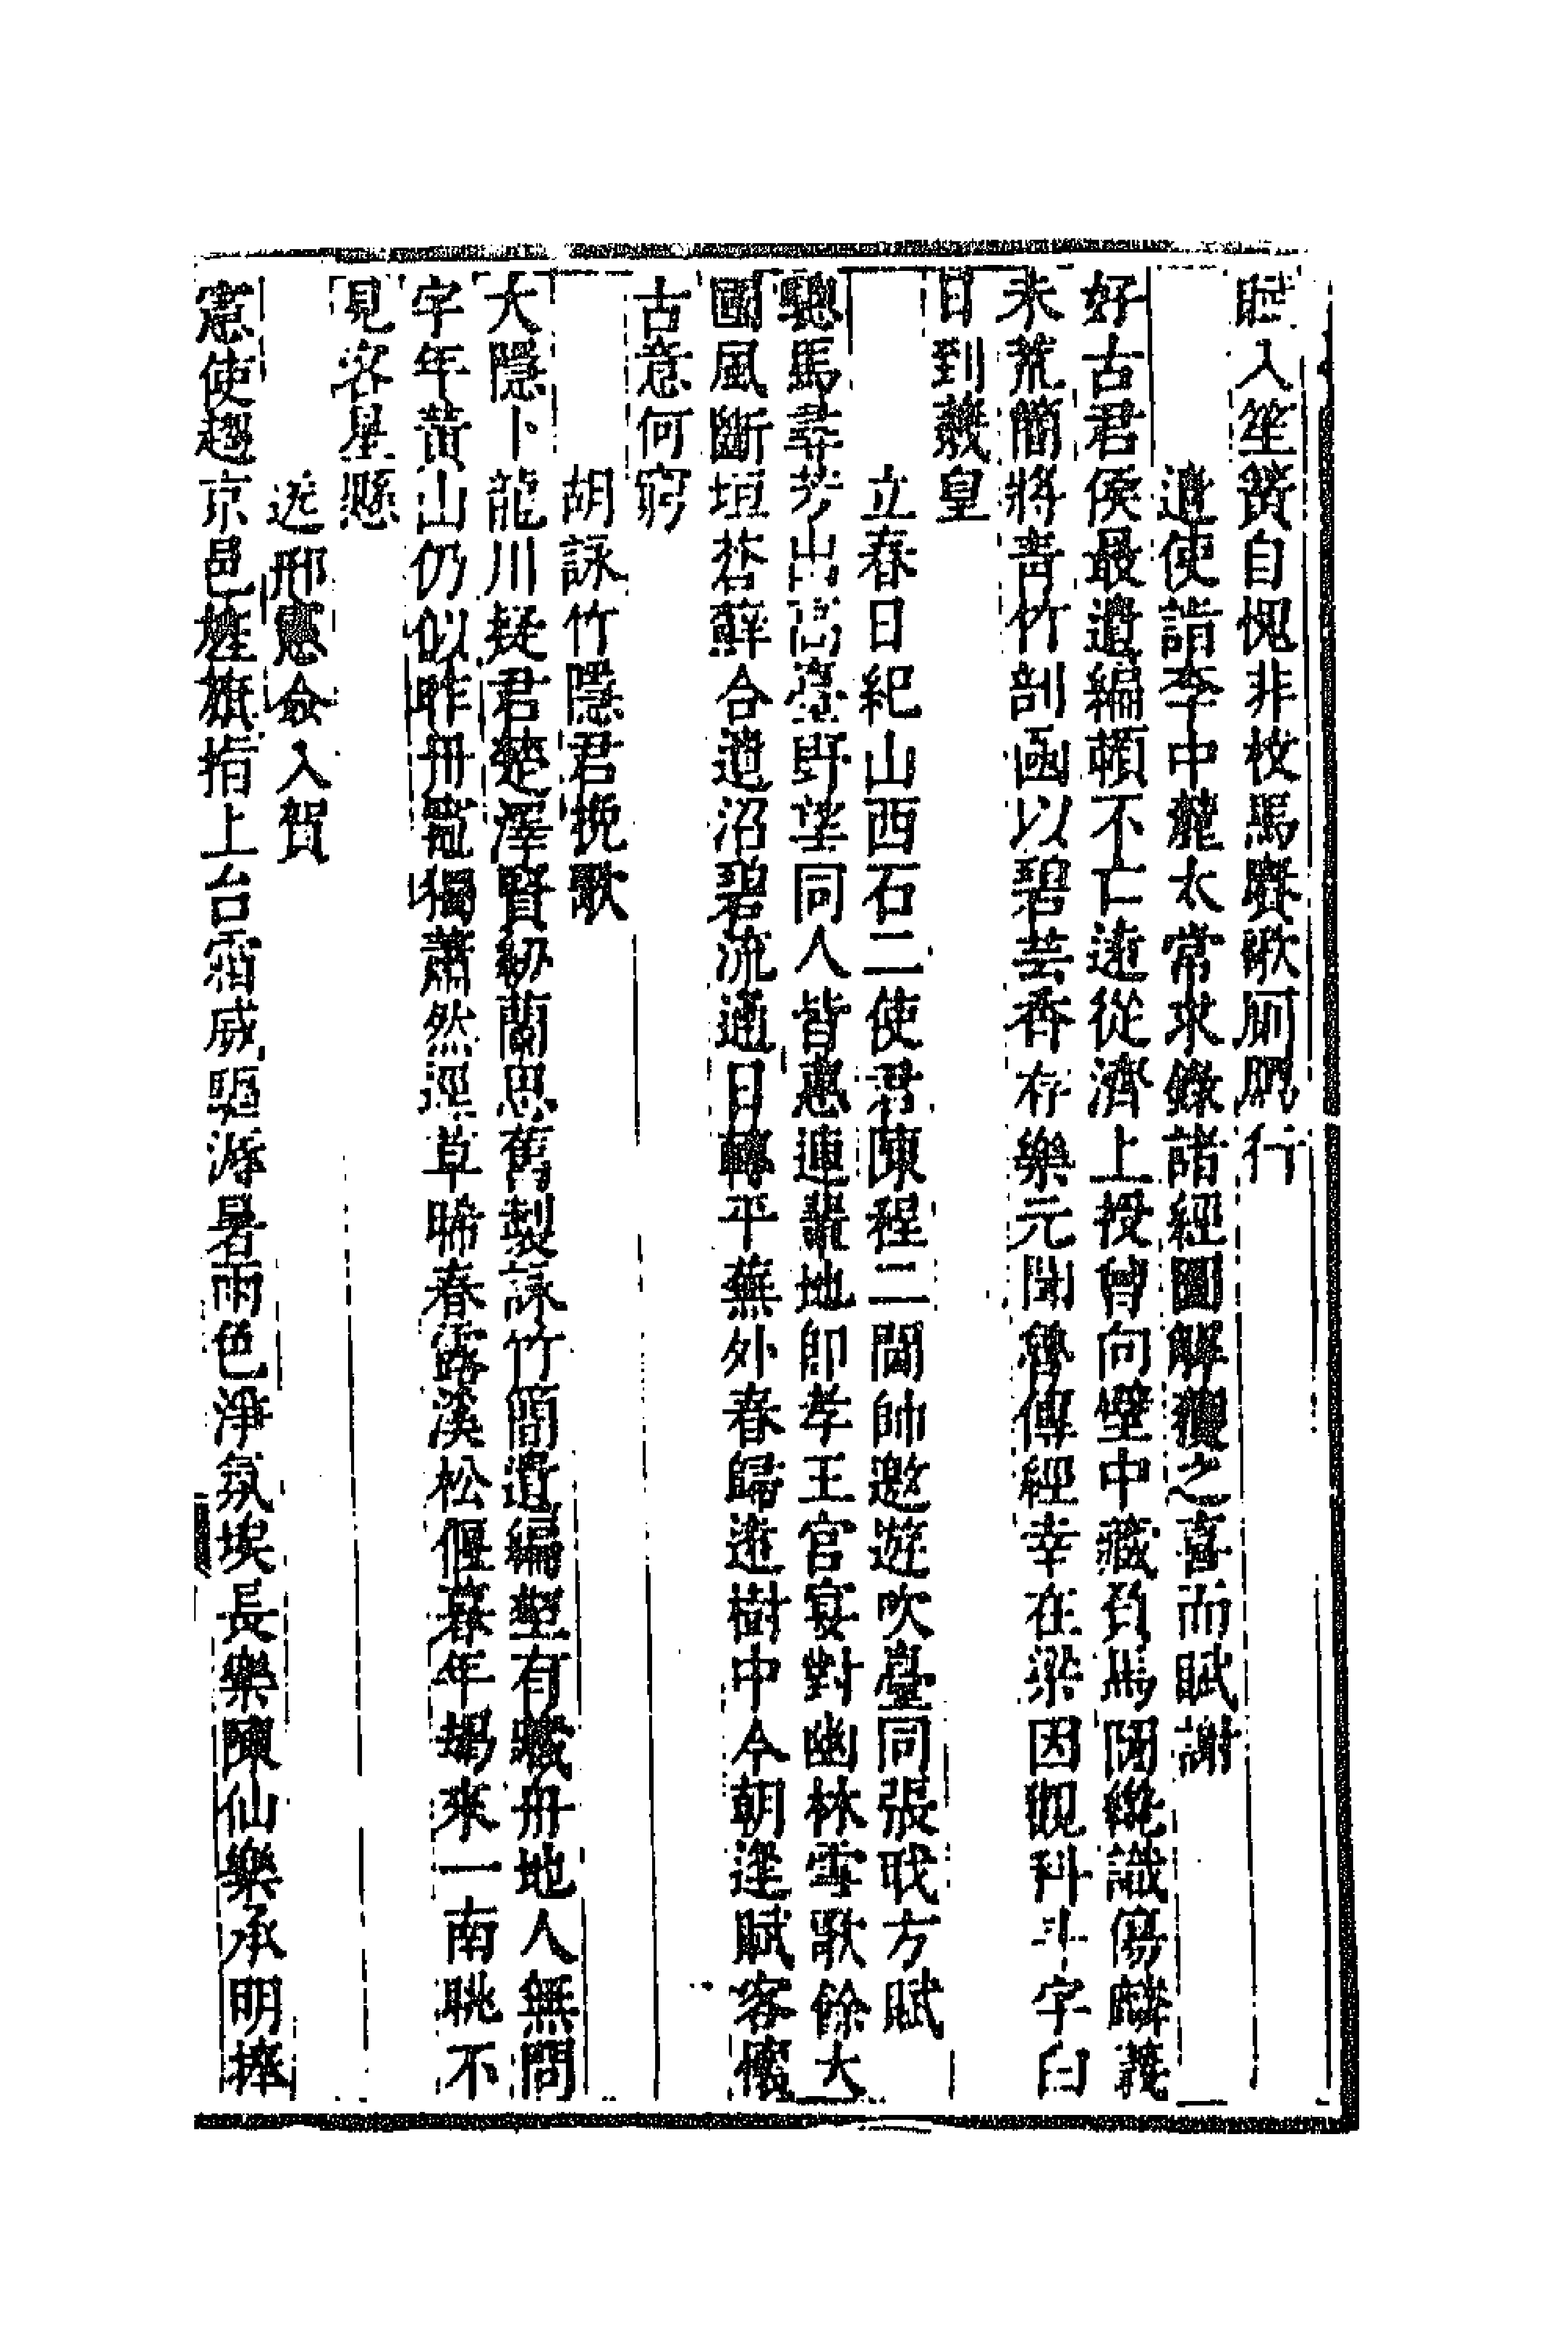 賦入笙簧自愧非枚馬賡歌厠鴈行
遣使詣李中麓太常求錄諸經圖解獲之喜而賦謝
好古君侯最遺編賴不亡遠從濟上授曾向壁中藏負馬開縄識傷麟義
未荒簡將青竹剖函以碧芸香存樂元聞魯傳經幸在梁因觀科斗字白
日到羲皇
立春日紀山西石二使君陳程二閫帥邀遊吹臺同張戢方賦
驄馬尋芳出高臺野望同人皆惠連叢地即孝王官宴對幽林雪歌餘大
國風斷垣荅蘚合遺沼碧流通日轉平蕪外春歸遠樹中今朝逢賦客懷
古意何窮
胡詠竹隱君挽歌
大隱卜龍川疑君楚澤賢紉蘭思舊製詠竹簡遺編壑有藏舟地人無問
字年黃山仍似昨丹竈獨蕭然逕草晞春露溪松偃暮年朅來一南眺不
見客星懸
送邢憲僉入賀
憲使趨京邑旌旗指上台霜威驅溽暑雨色淨氛埃長樂陳仙樂承明捧